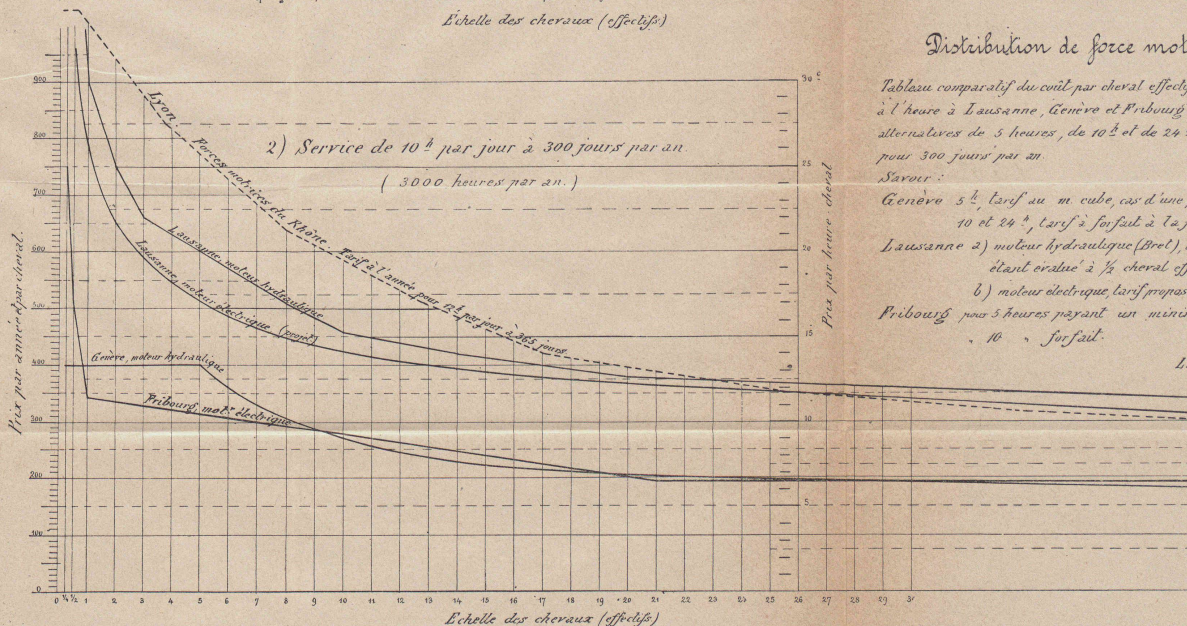 Échelle des chevaux (effectifs)
Distribution de force mot
Tableau comparatif du coût par cheval effecti
à l'heure à Lausanne, Genève et Fribourg
alternatives de 5 heures, de 10 h et de 24
pour 300 jours par an.
Savoir :
Genève 5 h, tarif au m. cube, cas d'une
10 et 24 h, tarif à forfait à la
Lausanne a) moteur hydraulique (Bret),
étant évalué à ½ cheval eff
b) moteur électrique, tarif propos
Fribourg pour 5 heures payant un mini
" 10 " forfait.
2) Service de 10 h par jour à 300 jours par an.
(3000 heures par an.)
Lyon. Forces motrices du Rhône. Tarif à l'année pour 12 h par jour à 365 jours.
Lausanne, moteur hydraulique
Lausanne, moteur électrique (projet)
Genève, moteur hydraulique
Fribourg, mot.r électrique
Prix par année et par cheval.
900
800
700
600
500
400
300
200
100
0
Prix par heure cheval
30 c
25
20
15
10
5
0 ¼ ½ 1 2 3 4 5 6 7 8 9 10 11 12 13 14 15 16 17 18 19 20 21 22 23 24 25 26 27 28 29 3
Echelle des chevaux (effectifs)